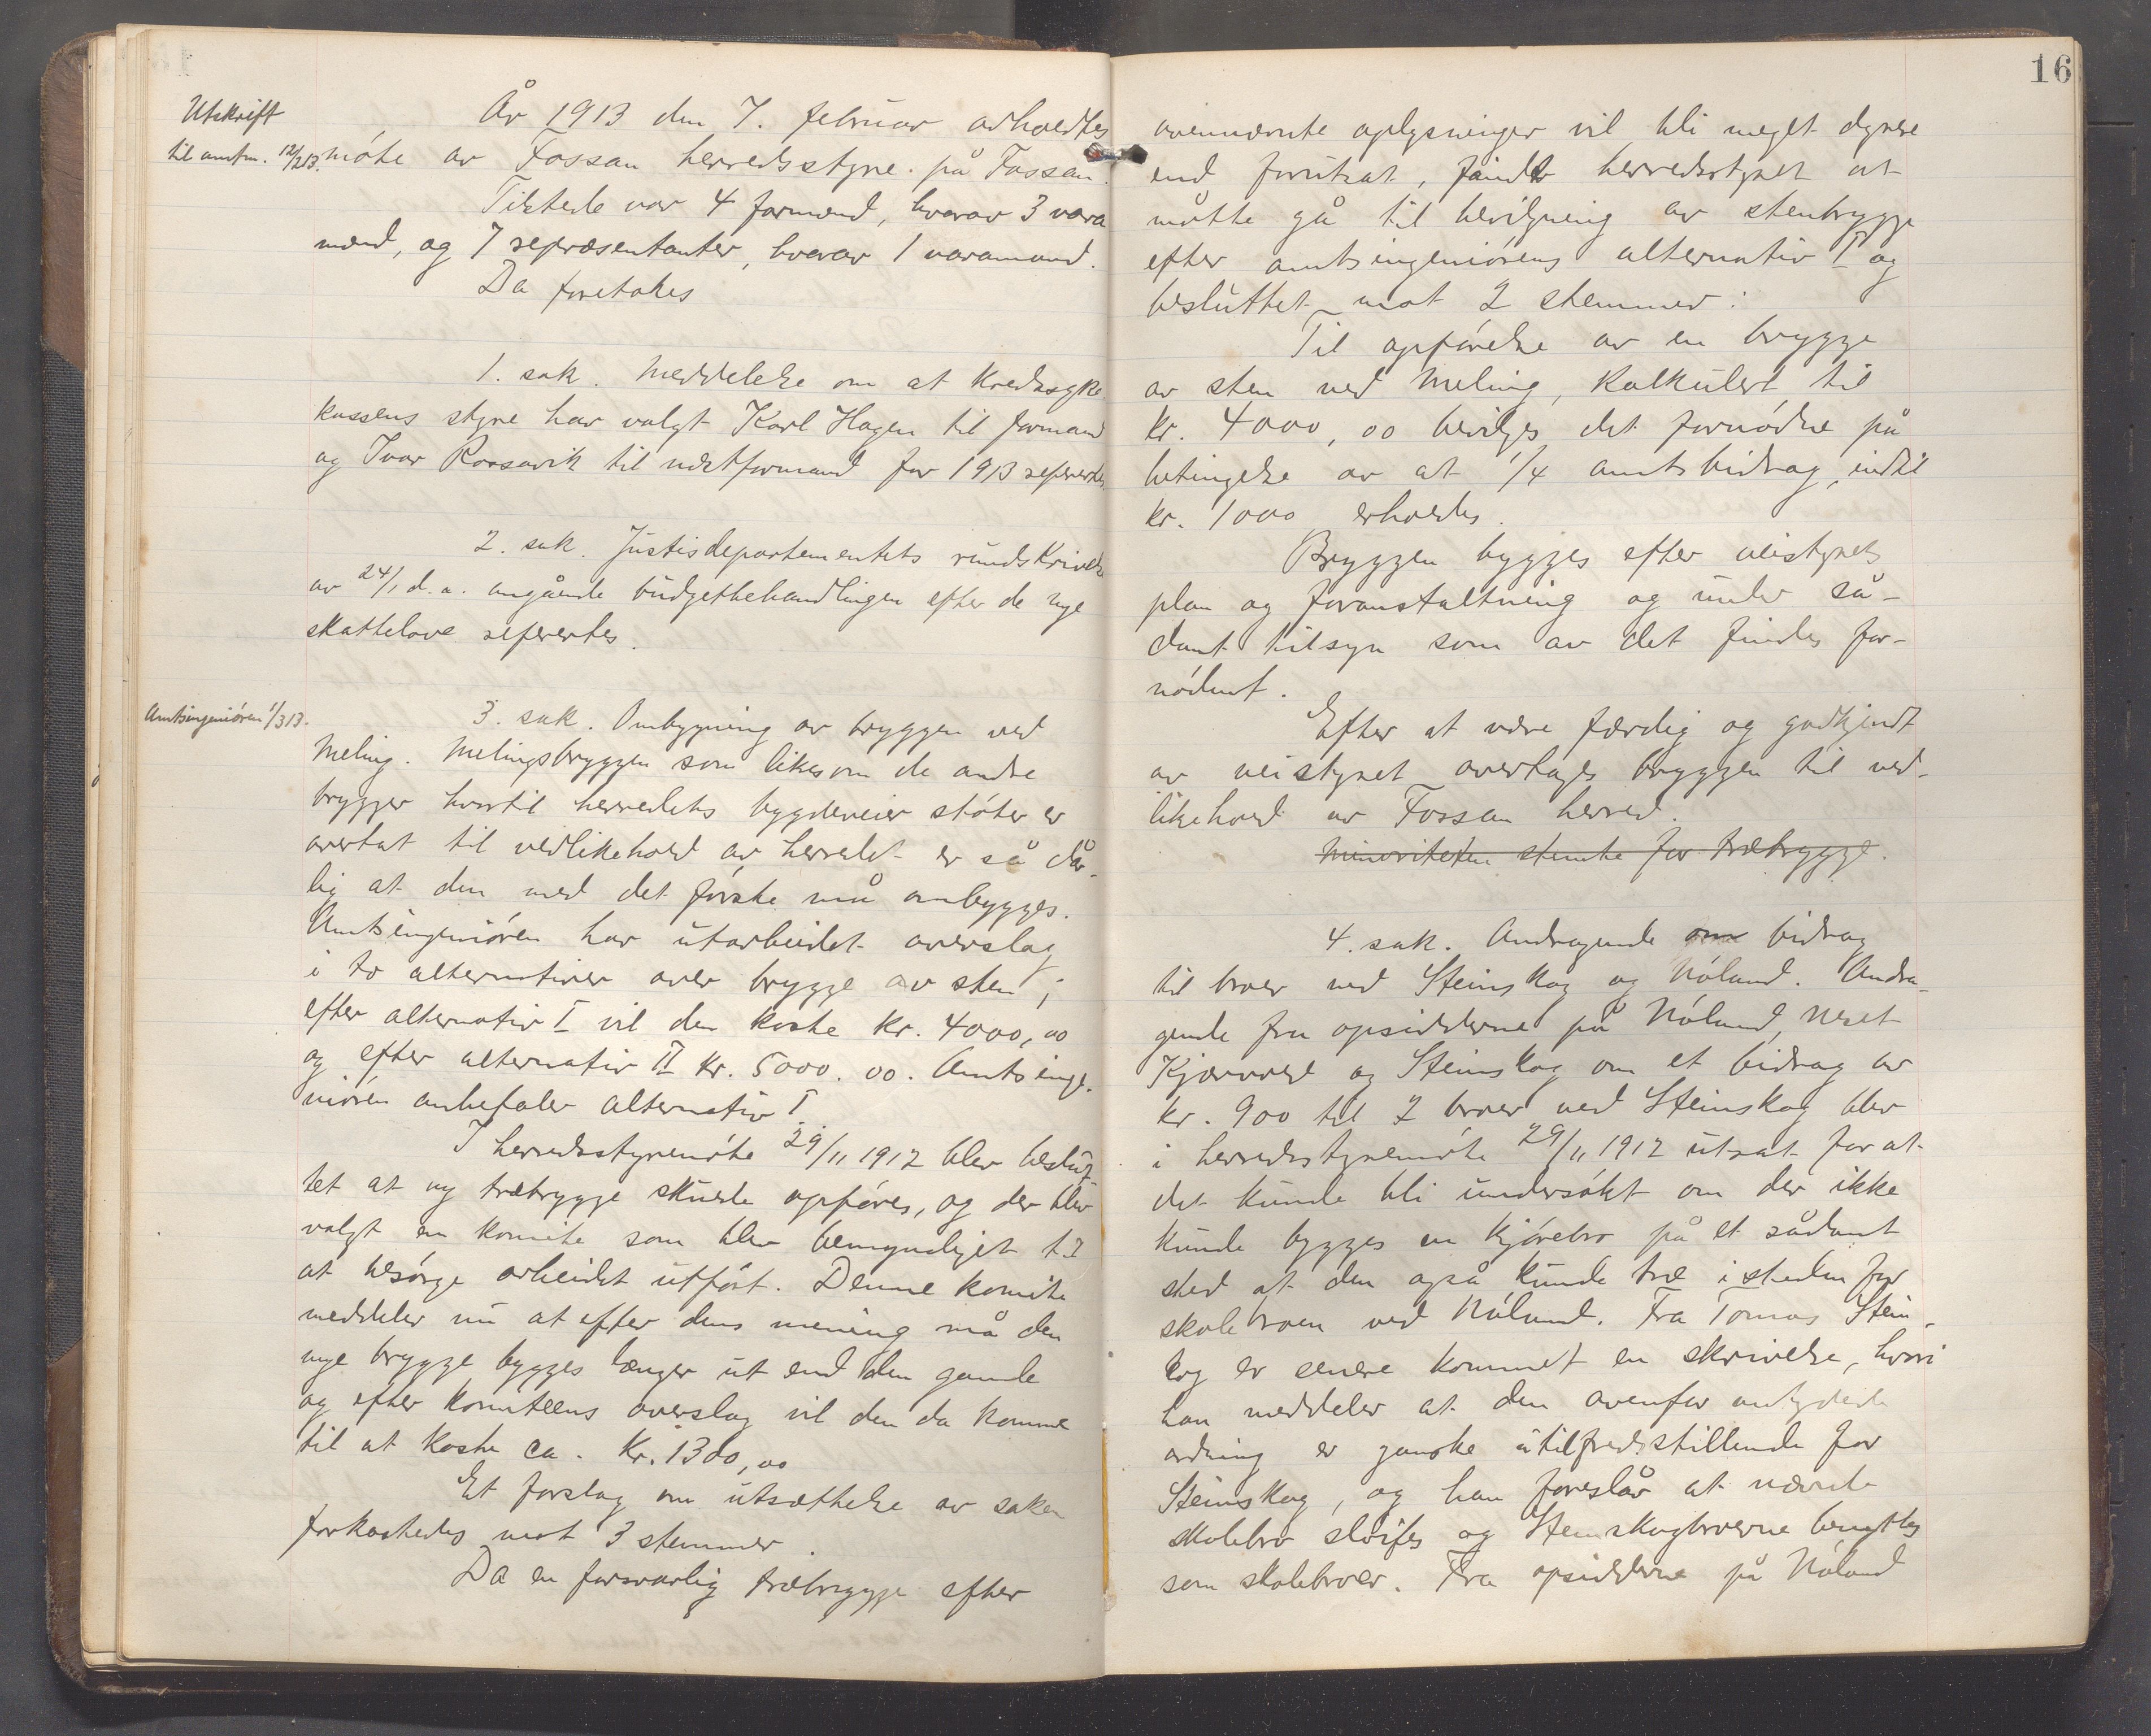 Utskrift
til amtm. 12/2 13.
År 1913 den 7. februar avholdtes
møte av Fossan herredsstyre på Fossan.
Tilstede var 4 formænd, hvorav 3 vara
mænd, og 7 repræsentanter, hvorav 1 varamand.
Da foretokes
1. sak. Meddelelse om at Kredssyke
kassens styre har valgt Karl Hagen til formand
og Ivar Rossavik til næstformand for 1913 refereredes.
2. sak. Justisdepartementets rundskrivelse
av 24/1 d.a. angående budgetbehandlingen efter de nye
skattelove referertes.
Amtsingeniøren 1/3 13.
3. sak. Ombygning av bryggen ved
Meling. Melingsbryggen som likesom de andre
brygger hvortil herredets bygdeveier støter er
overtat til vedlikehold av herredet er så dår-
lig at den med det første må ombygges.
Amtsingeniøren har utarbeidet overslag
i to alternativer over brygge av sten;
efter alternativ I vil den koste kr. 4000,00
og efter alternativ II kr. 5000.00. Amtsinge-
niøren anbefaler alternativ I.
I herredsstyremøte 29/11 1912 blev beslut
tet at ny træbrygge skulde opføres, og der blev
valgt en komite som blev bemyndiget til
at besørge arbeidet utført. Denne komite
meddeler nu at efter dens mening må den
nye brygge bygges længer ut end den gamle
og efter komiteens overslag vil den da komme
til at koste ca. kr. 1300,00
Et forslag om utsættelse av saken
forkastedes mot 3 stemmer.
Da en forsvarlig træbrygge efter
16
ovennævnte oplysninger vil bli meget dyrere
end forutsat, fandt herredsstyret at
måtte gå til bevilgning av stenbrygge
efter amtsingeniørens alternativ I og
besluttet mot 2 stemmer:
Til opførelse av en brygge
av sten ved Meling, kalkulert til
kr. 4000,00 bevilges det fornødne på
betingelse av at 1/4 amtsbidrag, indtil
kr. 1000 erholdes.
Bryggen bygges efter veistyrets
plan og foranstaltning og under så-
dant tilsyn som av det findes for-
nødent.
Efter at være færdig og godkjendt
av veistyret overtages bryggen til ved-
likehold av Fossan herred.
Minoriteten stemte for træbrygge.
4. sak. Andragende om bidrag
til broer ved Steinskog og Nøland. Andra-
gende fra opsidderne på Nøland, Neset
Kjørvold og Steinskog om et bidrag av
kr. 900 til 2 broer ved Steinskog blev
i herredsstyremøte 29/11 1912 utsat for at
det kunde bli undersøkt om der ikke
kunde bygges en kjørebro på et sådant
sted at den også kunde træ isteden for
skolebroen ved Nøland. Fra Tomas Stein-
skog er senere kommet en skrivelse, hvori
han meddeler at den ovenfor antydede
ordning er ganske utilfredsstillende for
Steinskog, og han foreslår at nævnte
skolebro sløifes og Steinskogbroerne benyttes
som skolebroer. Fra opsidderne på Nøland